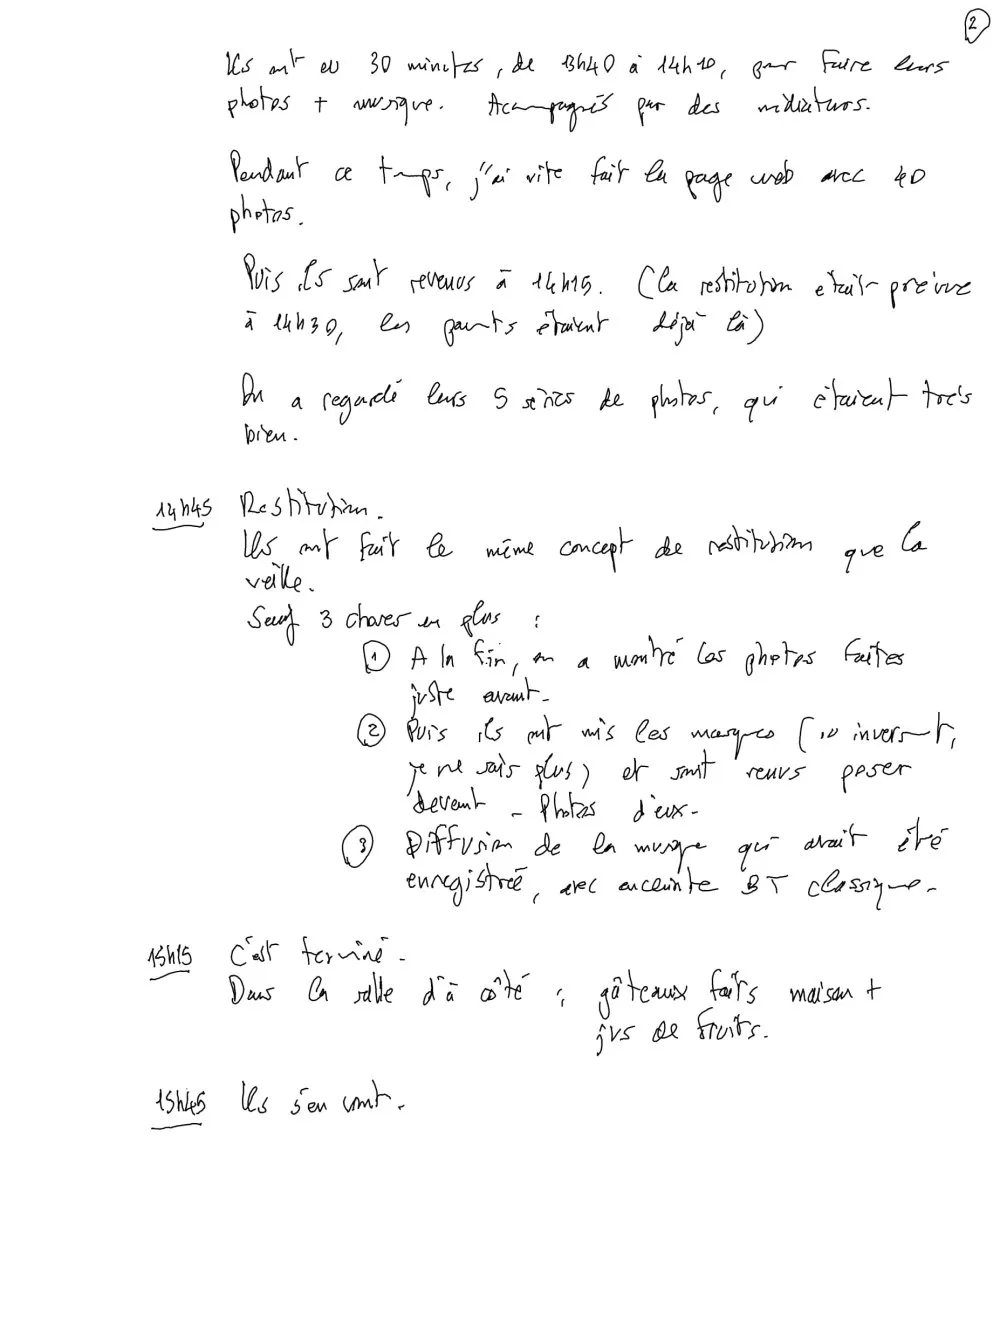 2
Ils ont eu 30 minutes, de 13h40 à 14h10, pour faire leurs
photos + musique. Acampagnés par des médiateurs.
Pendant ce temps, j'ai vite fait la page web avec 40
photos.
Puis ils sont revenus à 14h15. (la restitution était prévue
à 14h30, les parents étaient déjà là)
On a regardé leurs 5 séries de photos, qui étaient très
bien.
14h45 Restitution.
Ils ont fait le même concept de restitution que la
veille.
Sauf 3 choses en plus :
1 A la fin, on a montré les photos faites
juste avant.
2 Puis ils ont mis les masques (ou inversent,
je ne sais plus) et sont venus poser
devant - Photos d'eux.
3 Diffusion de la musique qui avait été
enregistrée, avec enceinte BT classique.
15h15 C'est terminé.
Dans la salle d'à côté : gâteaux faits maison +
jus de fruits.
15h45 Ils s'en vont.